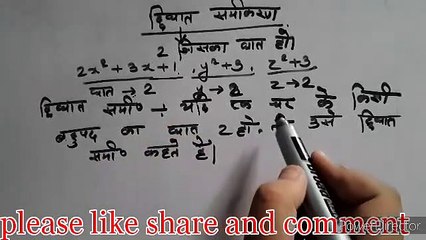 द्विघात समीकरण
2 जिसका घात हो।
2x²+3x+1, y²+3, z²+3
घात → 2 y→2 z→2
द्विघात समी० : यदि एक चर के किसी
बहुपद का घात 2 हो। उसे द्विघात
समी० कहते है।
please like share and comment
PowerDirector